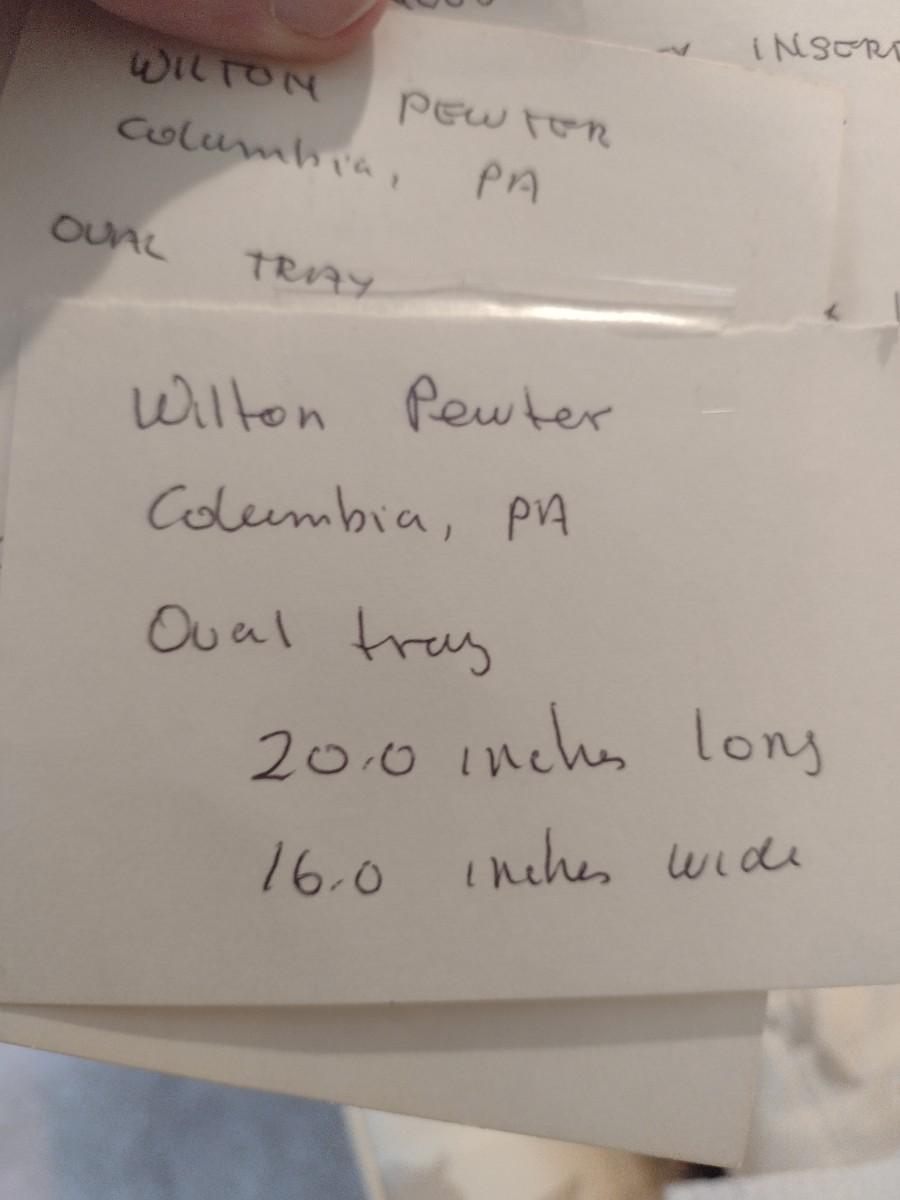 INSER
WILTON PEWTER
Columbia, PA
OVAL TRAY
Wilton Pewter
Columbia, PA
Oval tray
20.0 inches long
16.0 inches wide